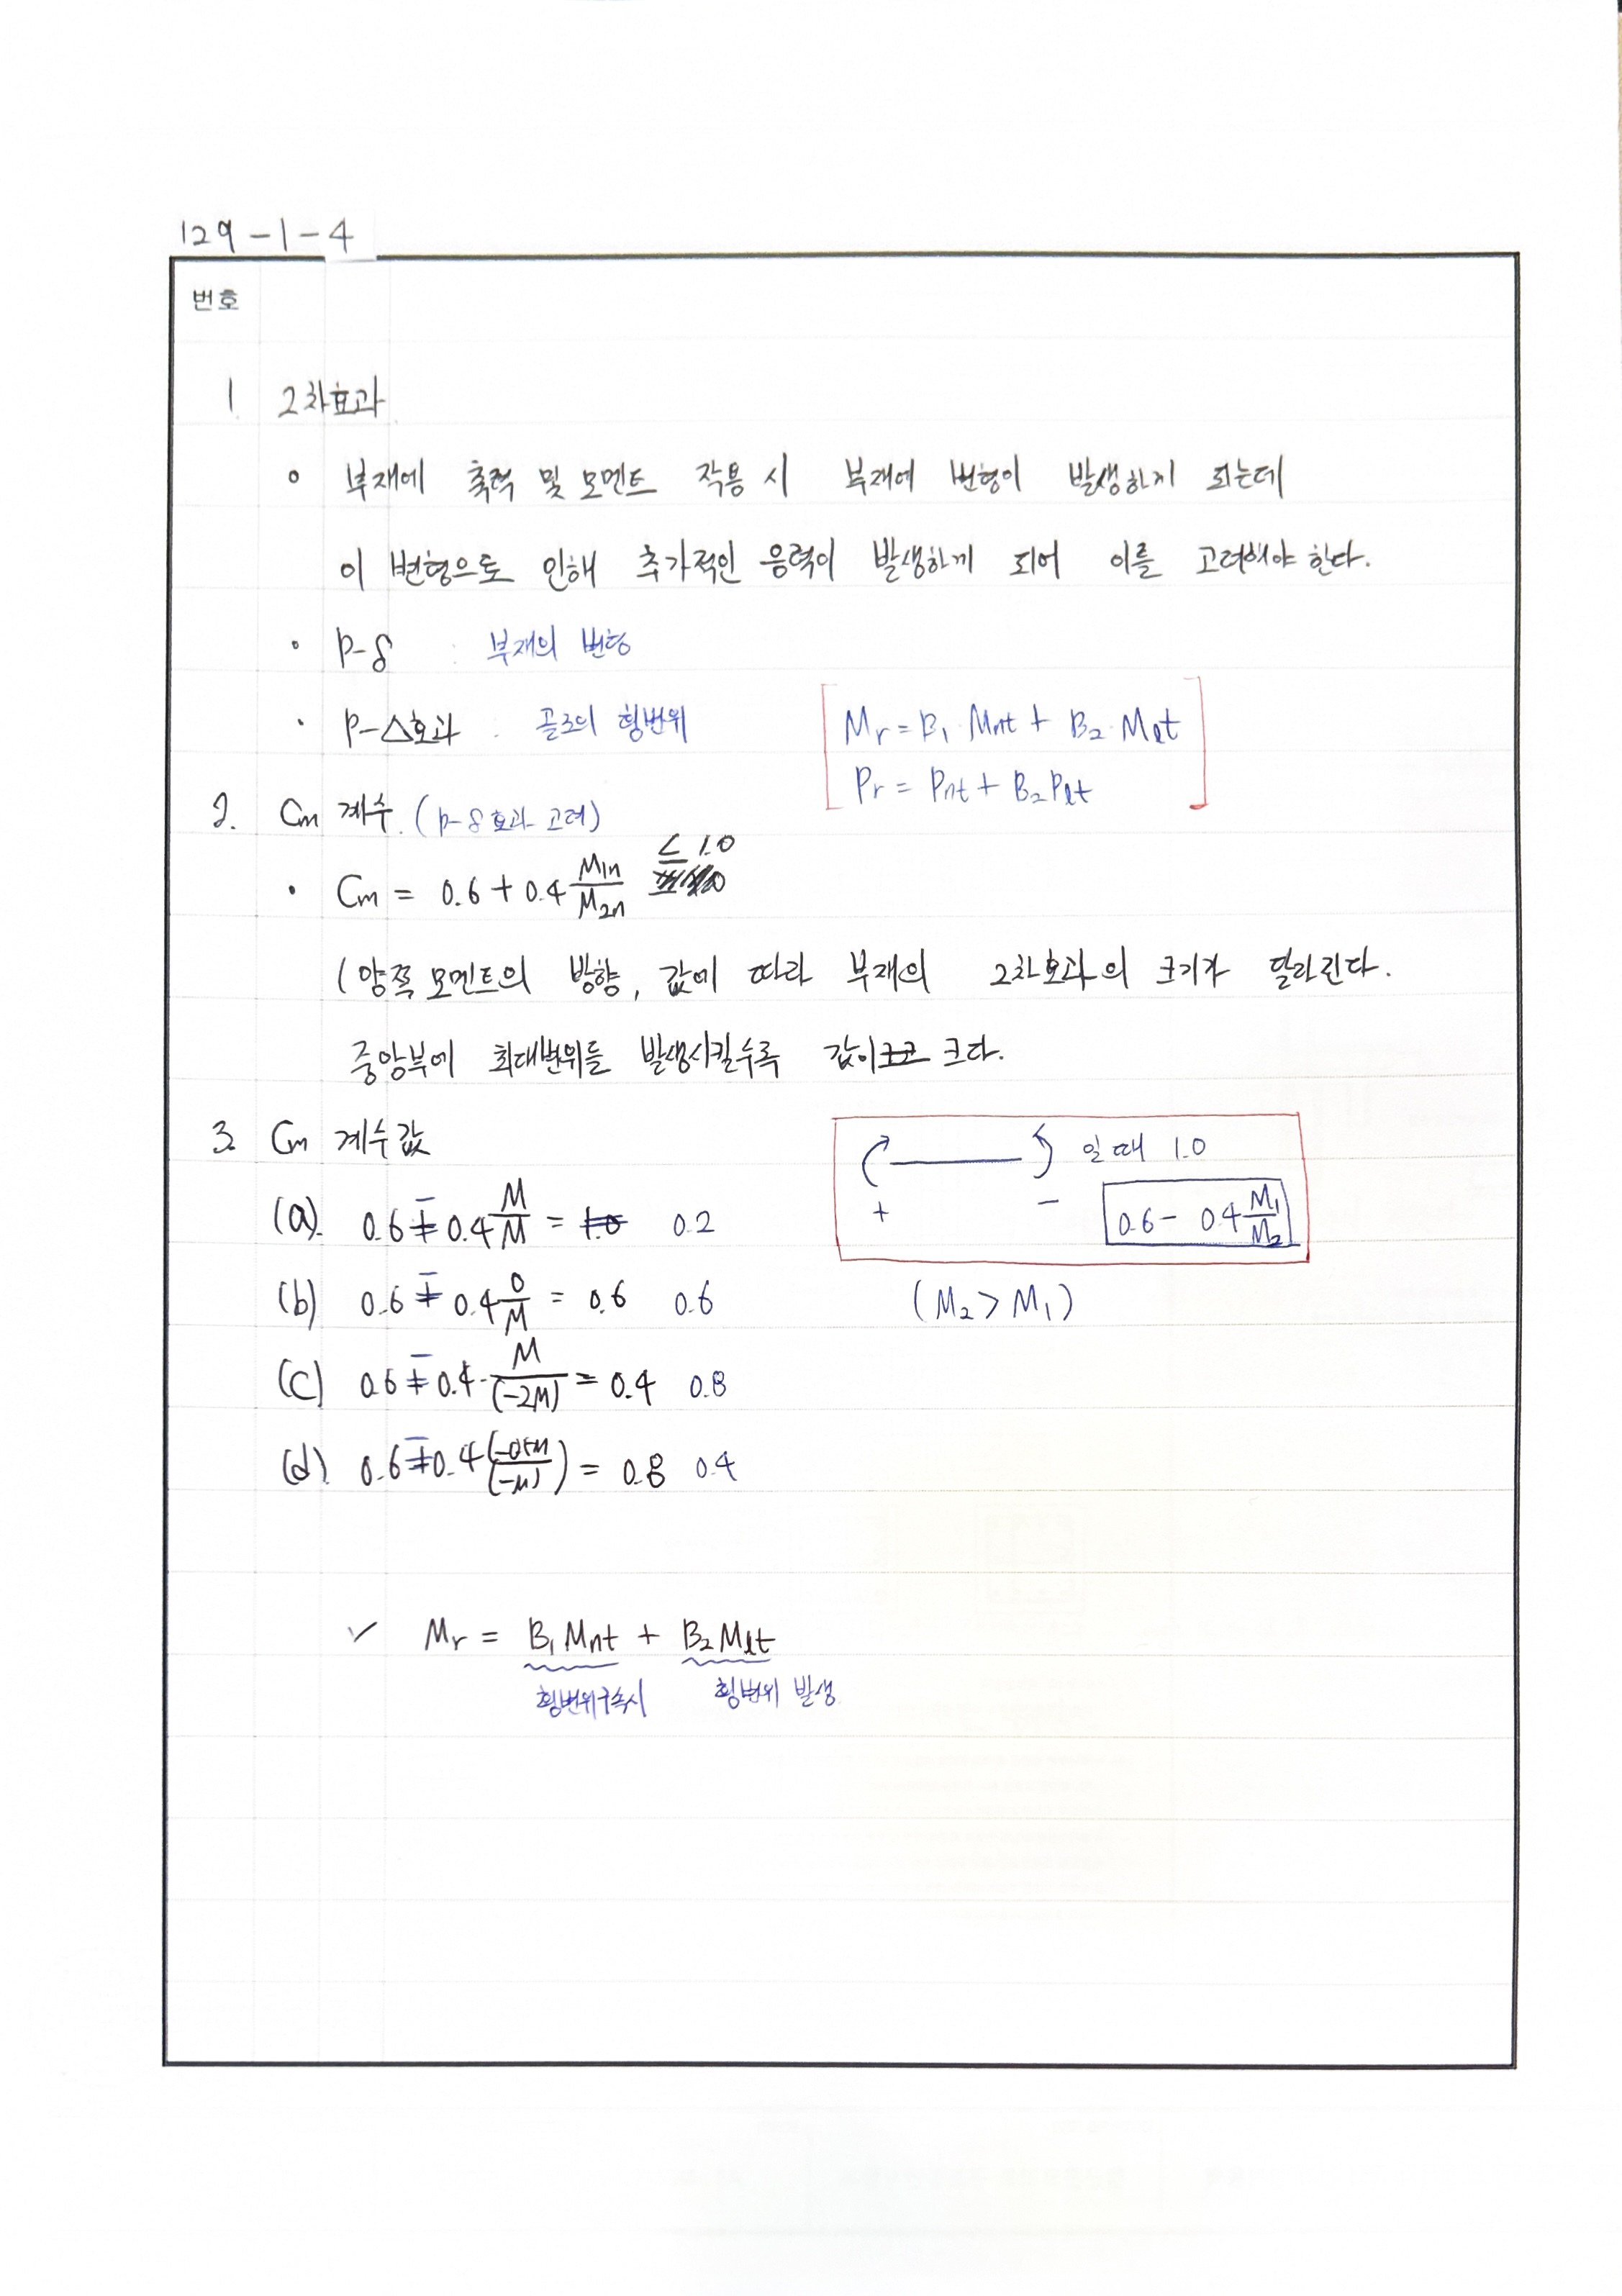 129-1-4
번호
1. 2차효과
◦ 부재에 축력 및 모멘트 작용 시 부재에 변형이 발생하게 되는데
이 변형으로 인해 추가적인 응력이 발생하게 되어 이를 고려해야 한다.
• P-δ : 부재의 변형
• P-△효과 : 골조의 횡변위
Mr = B1·Mnt + B2·Mlt
Pr = Pnt + B2Plt
2. Cm 계수. (P-δ 효과 고려)
• Cm = 0.6 + 0.4 M1n/M2n ≤ 1.0
(양쪽 모멘트의 방향, 값에 따라 부재의 2차효과의 크기가 달라진다.
중앙부에 최대변위를 발생시킬수록 값이 크다.
3. Cm 계수값
일 때 1.0
+ −
0.6 − 0.4 M1/M2
(a). 0.6 − 0.4 M/M = 1.0 0.2
(b) 0.6 − 0.4 0/M = 0.6 0.6
(M2 > M1)
(c) 0.6 − 0.4· M/(-2M) = 0.4 0.8
(d). 0.6 − 0.4 (-0.5M/(-M)) = 0.8 0.4
✓ Mr = B1Mnt + B2Mlt
횡변위구속시 횡변위 발생